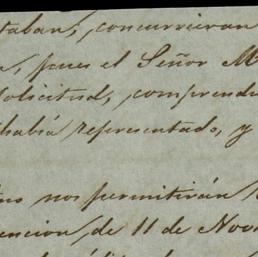 taban, concurrieran
, pues el Señor M
solicitud, comprend
habia representado, y
nos permitirán
encion de 11 de Nov